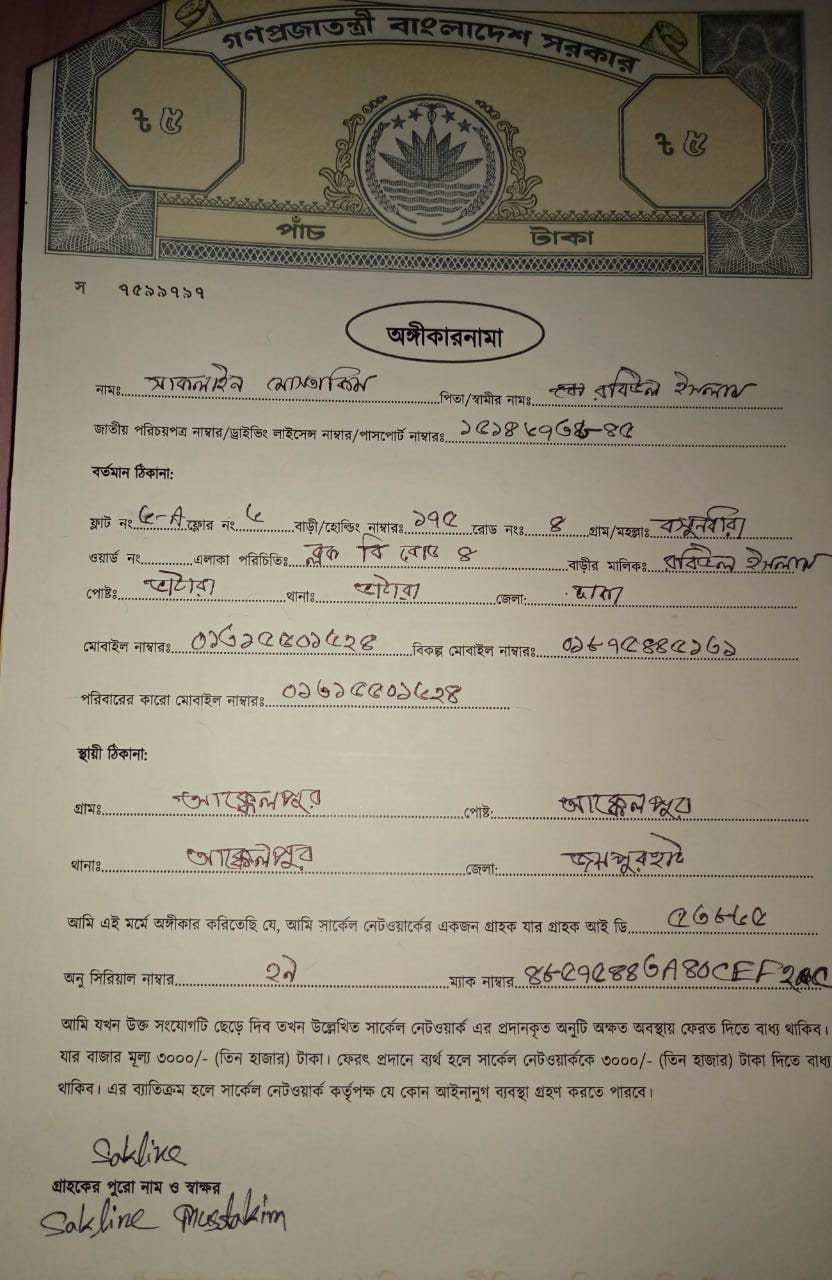 গণপ্রজাতন্ত্রী বাংলাদেশ সরকার
৳ ৫ ৳ ৫
পাঁচ টাকা
স ৭৫১১৭১৭
অঙ্গীকারনামা
নামঃ সাকলাইন মোসতাকিম পিতা/স্বামীর নামঃ রবিউল ইসলাম
জাতীয় পরিচয়পত্র নাম্বার/ড্রাইভিং লাইসেন্স নাম্বার/পাসপোর্ট নাম্বারঃ
বর্তমান ঠিকানা:
ফ্লাট নং ৫-A ফ্লোর নং ৫ বাড়ী/হোল্ডিং নাম্বারঃ ১৭৫ রোড নংঃ ৪ গ্রাম/মহল্লাঃ
ওয়ার্ড নং এলাকা পরিচিতিঃ ব্লক বি রোড ৪ বাড়ীর মালিকঃ রবিউল ইসলাম
পোষ্টঃ ভাটারা থানাঃ ভাটারা জেলা: ঢাকা
মোবাইল নাম্বারঃ বিকল্প মোবাইল নাম্বারঃ
পরিবারের কারো মোবাইল নাম্বারঃ
স্থায়ী ঠিকানা:
গ্রামঃ আক্কেলপুর পোষ্ট: আক্কেলপুর
থানাঃ আক্কেলপুর জেলা: জয়পুরহাট
আমি এই মর্মে অঙ্গীকার করিতেছি যে, আমি সার্কেল নেটওয়ার্কের একজন গ্রাহক যার গ্রাহক আই ডি
অনু সিরিয়াল নাম্বার ম্যাক নাম্বার
আমি যখন উক্ত সংযোগটি ছেড়ে দিব তখন উল্লেখিত সার্কেল নেটওয়ার্ক এর প্রদানকৃত অনুটি অক্ষত অবস্থায় ফেরত দিতে বাধ্য থাকিব।
যার বাজার মূল্য ৩০০০/- (তিন হাজার) টাকা। ফেরৎ প্রদানে ব্যর্থ হলে সার্কেল নেটওয়ার্ককে ৩০০০/- (তিন হাজার) টাকা দিতে বাধ্য
থাকিব। এর ব্যাতিক্রম হলে সার্কেল নেটওয়ার্ক কর্তৃপক্ষ যে কোন আইনানুগ ব্যবস্থা গ্রহণ করতে পারবে।
Sakline
গ্রাহকের পুরো নাম ও স্বাক্ষর
Sakline Mustakim